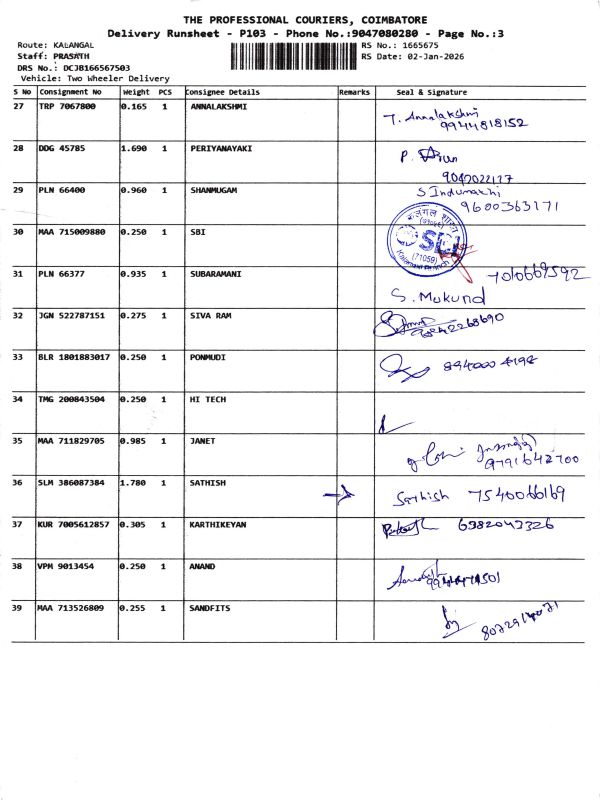 THE PROFESSIONAL COURIERS, COIMBATORE
Delivery Runsheet - P103 - Phone No.:9047080280 - Page No.:3
Route: KALANGAL
Staff: PRASATH
DRS No.: DCJB166567503
Vehicle: Two Wheeler Delivery
RS No.: 1665675
RS Date: 02-Jan-2026
S No Consignment No Weight PCS Consignee Details Remarks Seal & Signature
27 TRP 7067800 0.165 1 ANNALAKSHMI T. Annalakshmi
9944818152
28 DDG 45785 1.690 1 PERIYANAYAKI P.
9042022127
29 PLN 66400 0.960 1 SHANMUGAM S Indumathi
9600363171
30 MAA 715009880 0.250 1 SBI
SBI
(71059)
Kalangal Branch
31 PLN 66377 0.935 1 SUBARAMANI 7010669592
S. Mukund
32 JGN 522787151 0.275 1 SIVA RAM
9842268690
33 BLR 1801883017 0.250 1 PONMUDI 894000 4198
34 TMG 200843504 0.250 1 HI TECH
35 MAA 711829705 0.985 1 JANET
9791642700
36 SLM 386087384 1.780 1 SATHISH → Sathish 7540066169
37 KUR 7005612857 0.305 1 KARTHIKEYAN 6382043326
38 VPM 9013454 0.250 1 ANAND
39 MAA 713526809 0.255 1 SANDFITS